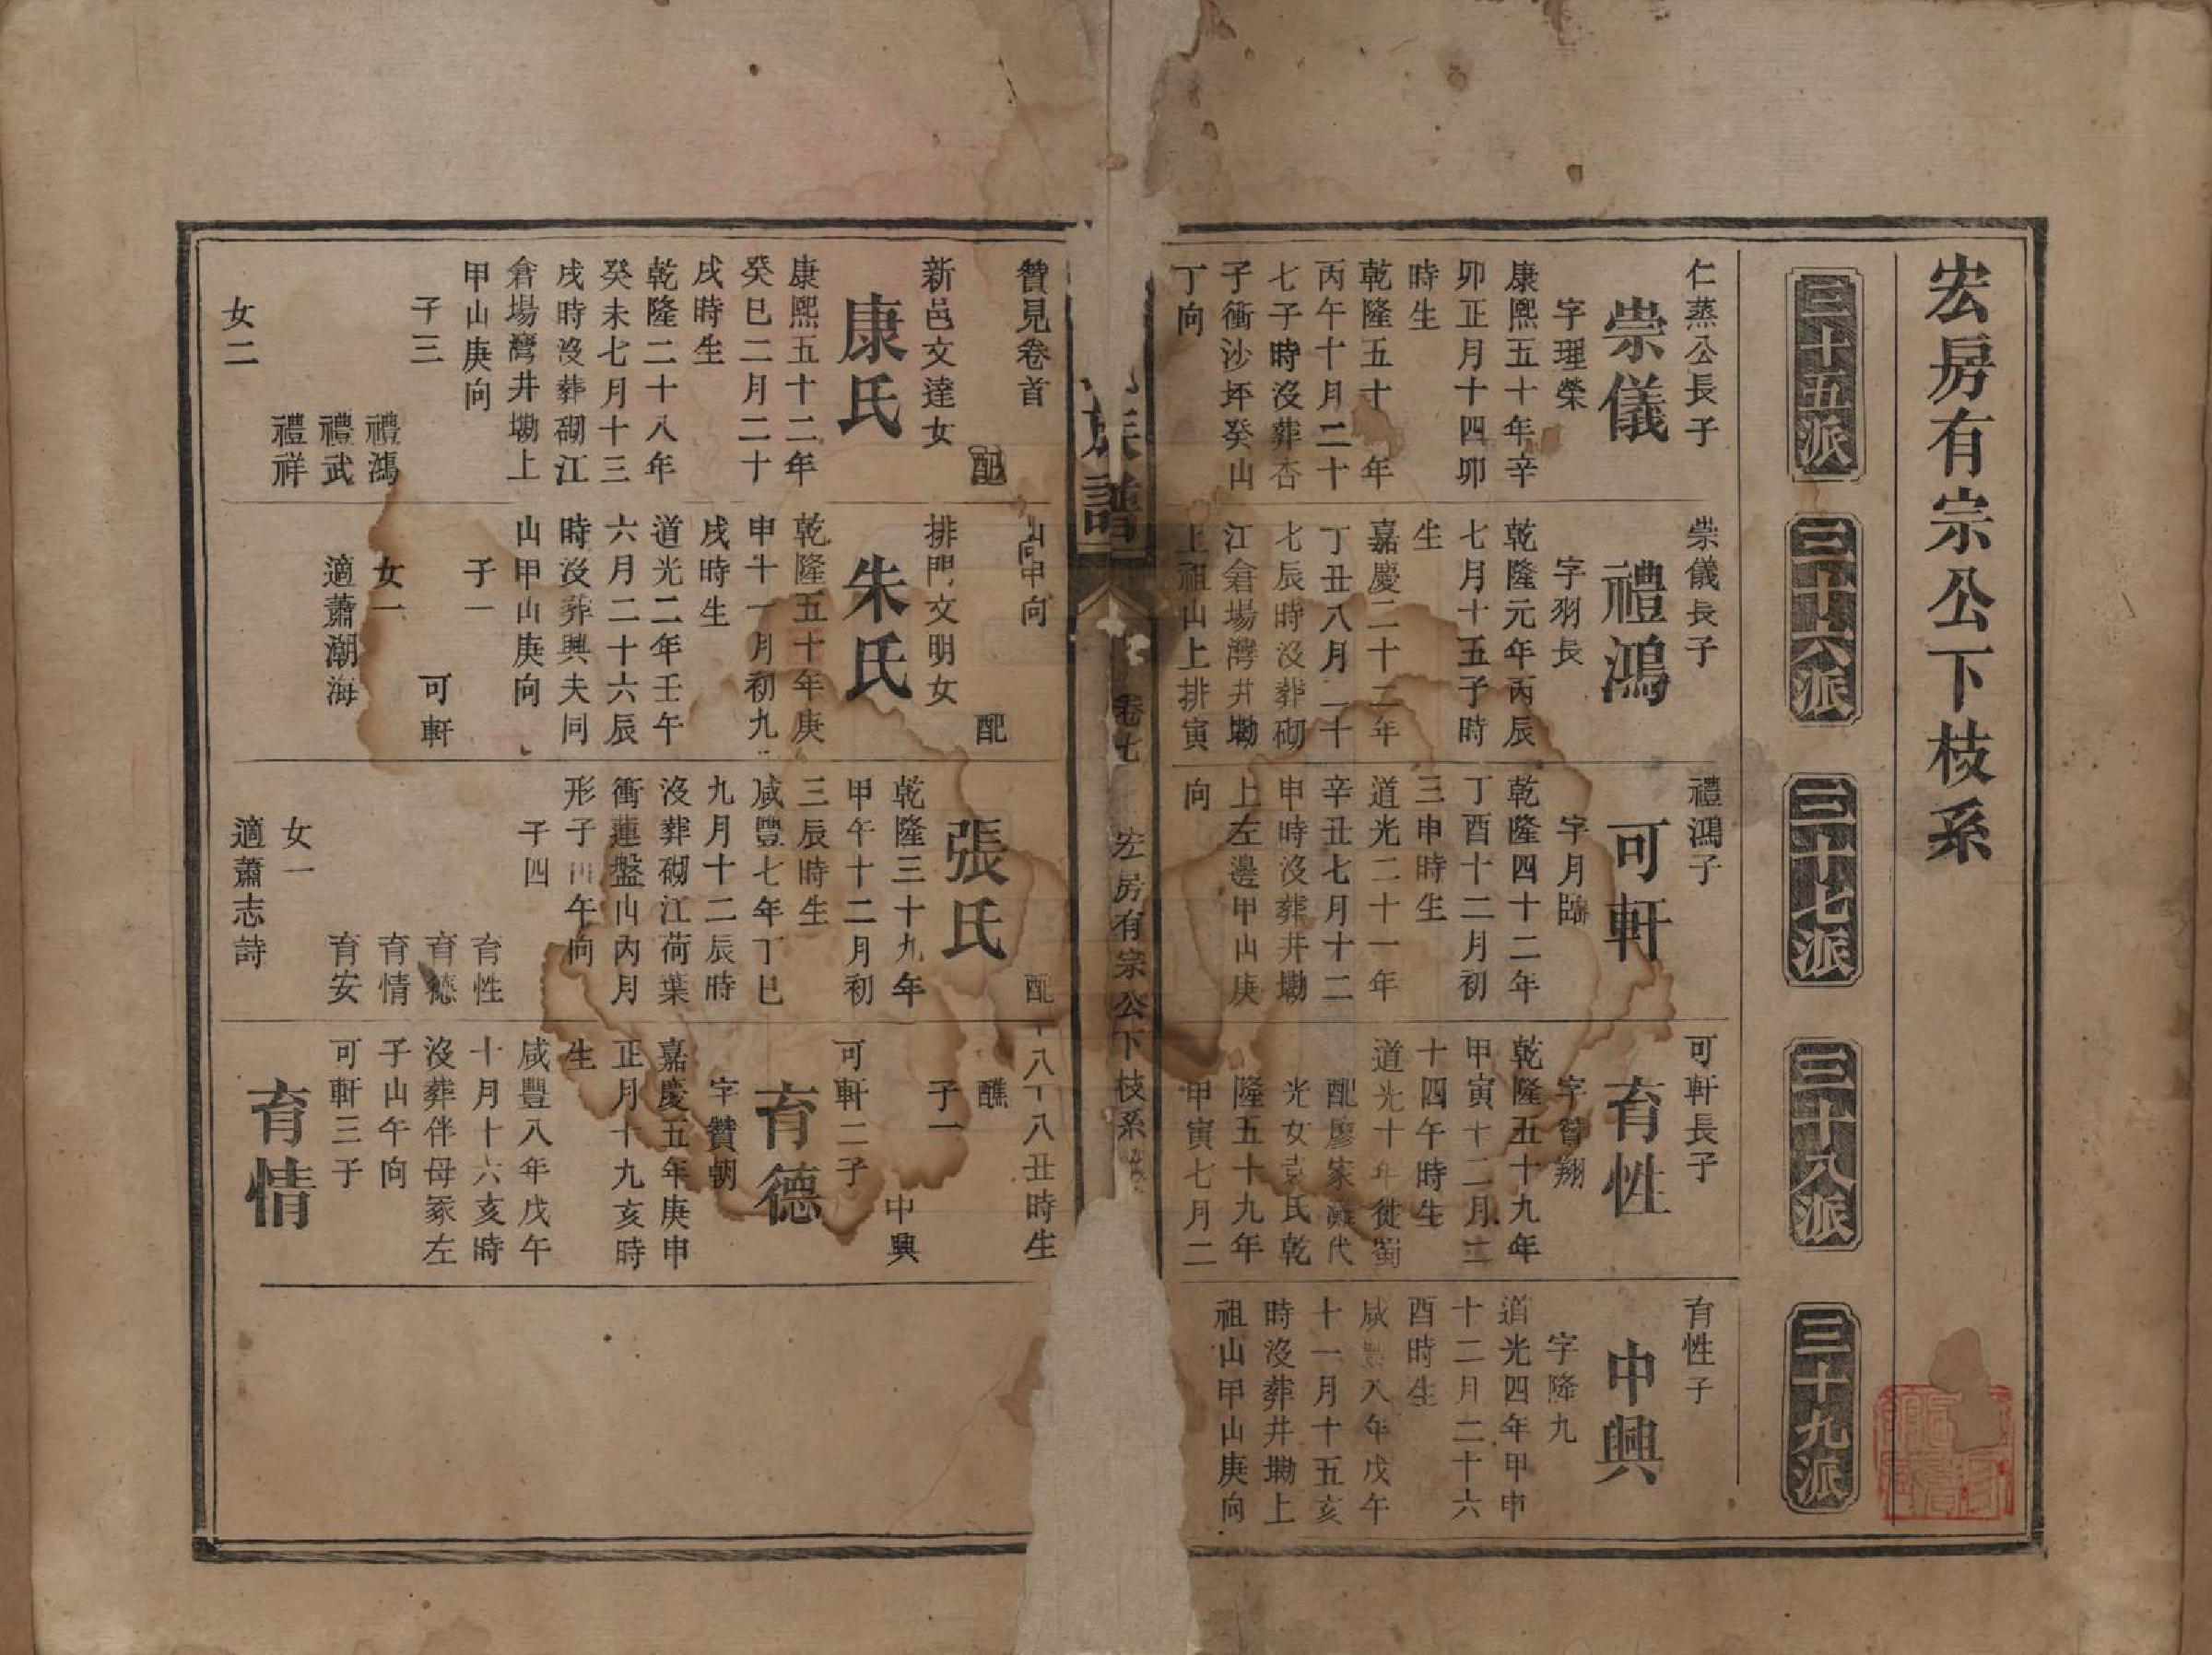 宏房有宗公下枝系
三十五派
三十六派
三十七派
三十八派
三十九派
仁蒸公長子
崇儀
字理榮
康熙五十年辛
卯正月十四卯
時生
乾隆五十一年
丙午十月二十
七子時沒葬杏
子衝沙坪癸山
丁向
贊見卷首
配
新邑文達女
康氏
康熙五十二年
癸巳二月二十
戌時生
乾隆二十八年
癸未七月十三
戌時沒葬砌江
倉場灣井塝上
甲山庚向
子三
禮鴻
禮武
禮祥
女二
崇儀長子
禮鴻
字羽長
乾隆元年丙辰
七月十五子時
生
嘉慶二十二年
丁丑八月二十
七辰時沒葬砌
江倉場灣井塝
上祖山上排寅
山申向
配
排門文明女
朱氏
乾隆五十年庚
申十一月初九
戌時生
道光二年壬午
六月二十六辰
時沒葬興夫同
山甲山庚向
子一
可軒
女一
適蕭潮海
禮鴻子
可軒
字月臨
乾隆四十二年
丁酉十二月初
三申時生
道光二十一年
辛丑七月十二
申時沒葬井塝
上左邊甲山庚
向
配
張氏
乾隆三十九年
甲午十二月初
三辰時生
咸豐七年丁巳
九月十二辰時
沒葬砌江荷葉
衝蓮盤山內月
形子山午向
子四
育性
育德
育情
育安
女一
適蕭志詩
可軒長子
育性
翔
乾隆五十九年
甲寅十二月二
十四午時生
道光十年徙蜀
配廖家代
光女袁氏乾
隆五十九年
甲寅七月二
十八丑時生
醮
子一
中興
可軒二子
育德
字贊朝
嘉慶五年庚申
正月十九亥時
生
咸豐八年戊午
十月十六亥時
沒葬伴母冢左
子山午向
可軒三子
育情
育性子
中興
字降九
道光四年甲申
十二月二十六
酉時生
咸豐八年戊午
十一月十五亥
時沒葬井塝上
祖山甲山庚向
族譜
卷七
宏房有宗公下枝系